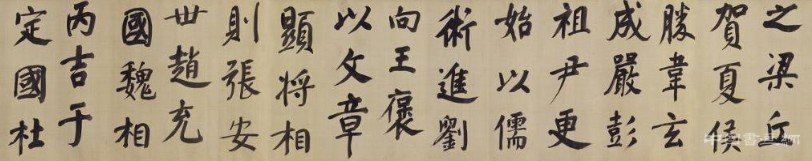 之梁丘
賀夏侯
勝韋玄
成嚴彭
祖尹更
始以儒
術進劉
向王褒
以文章
顯将相
則張安
世趙充
國魏相
丙吉于
定國杜